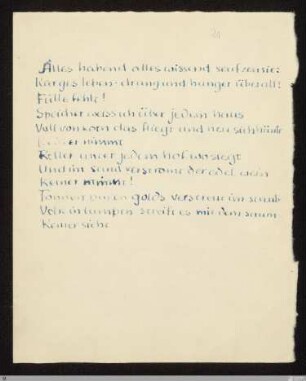 Alles habend alles wissend seufzen sie:
Karges leben · drang und hunger überall!
Fülle fehlt!
Speicher weiss ich über jedem haus
Voll von korn das fliegt und neu sich häuft
Keiner nimmt
Keller unter jedem hof wo siegt
Und im sand verströmt der edel wein
Keiner nimmt!
Tonnen puren golds verstreut im staub
Volk in lumpen streift es mit dem saum
Keiner sieht